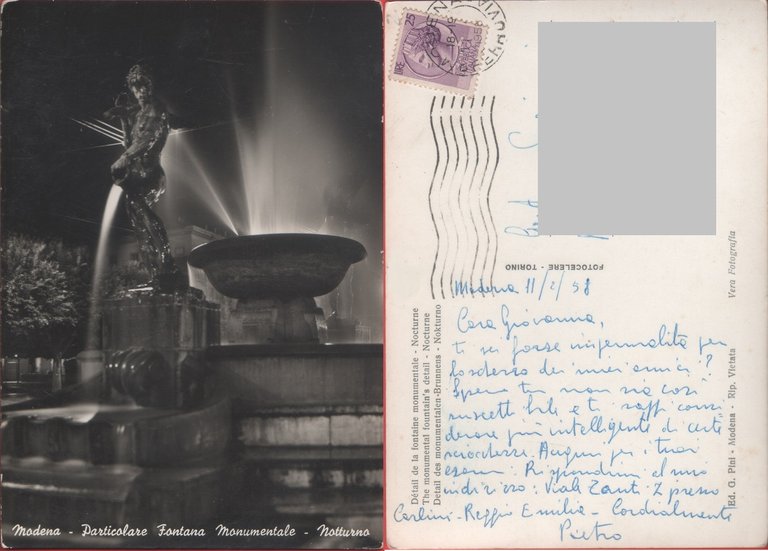 Modena - Particolare Fontana Monumentale - Notturno
LIRE 25
MODENA
Détail de la fontaine monumentale - Nocturne
The monumental fountain's detail - Nocturne
Detail des monumentalen-Brunnens - Nokturno
FOTOCELERE - TORINO
Vera Fotografia
Ed. G. Pini - Modena - Rip. Vietata
Modena 11/2/58
Cara Giovanna,
ti sei forse impermalita per
dei miei amici?
Spero tu non sia così
suscettibile e ti
più intelligente di certe
sciocchezze. Auguri per i tuoi
esami. Rispondimi al mio
indirizzo: Viale Zanti 2 presso
Carlini - Reggio Emilia - Cordialmente
Pietro